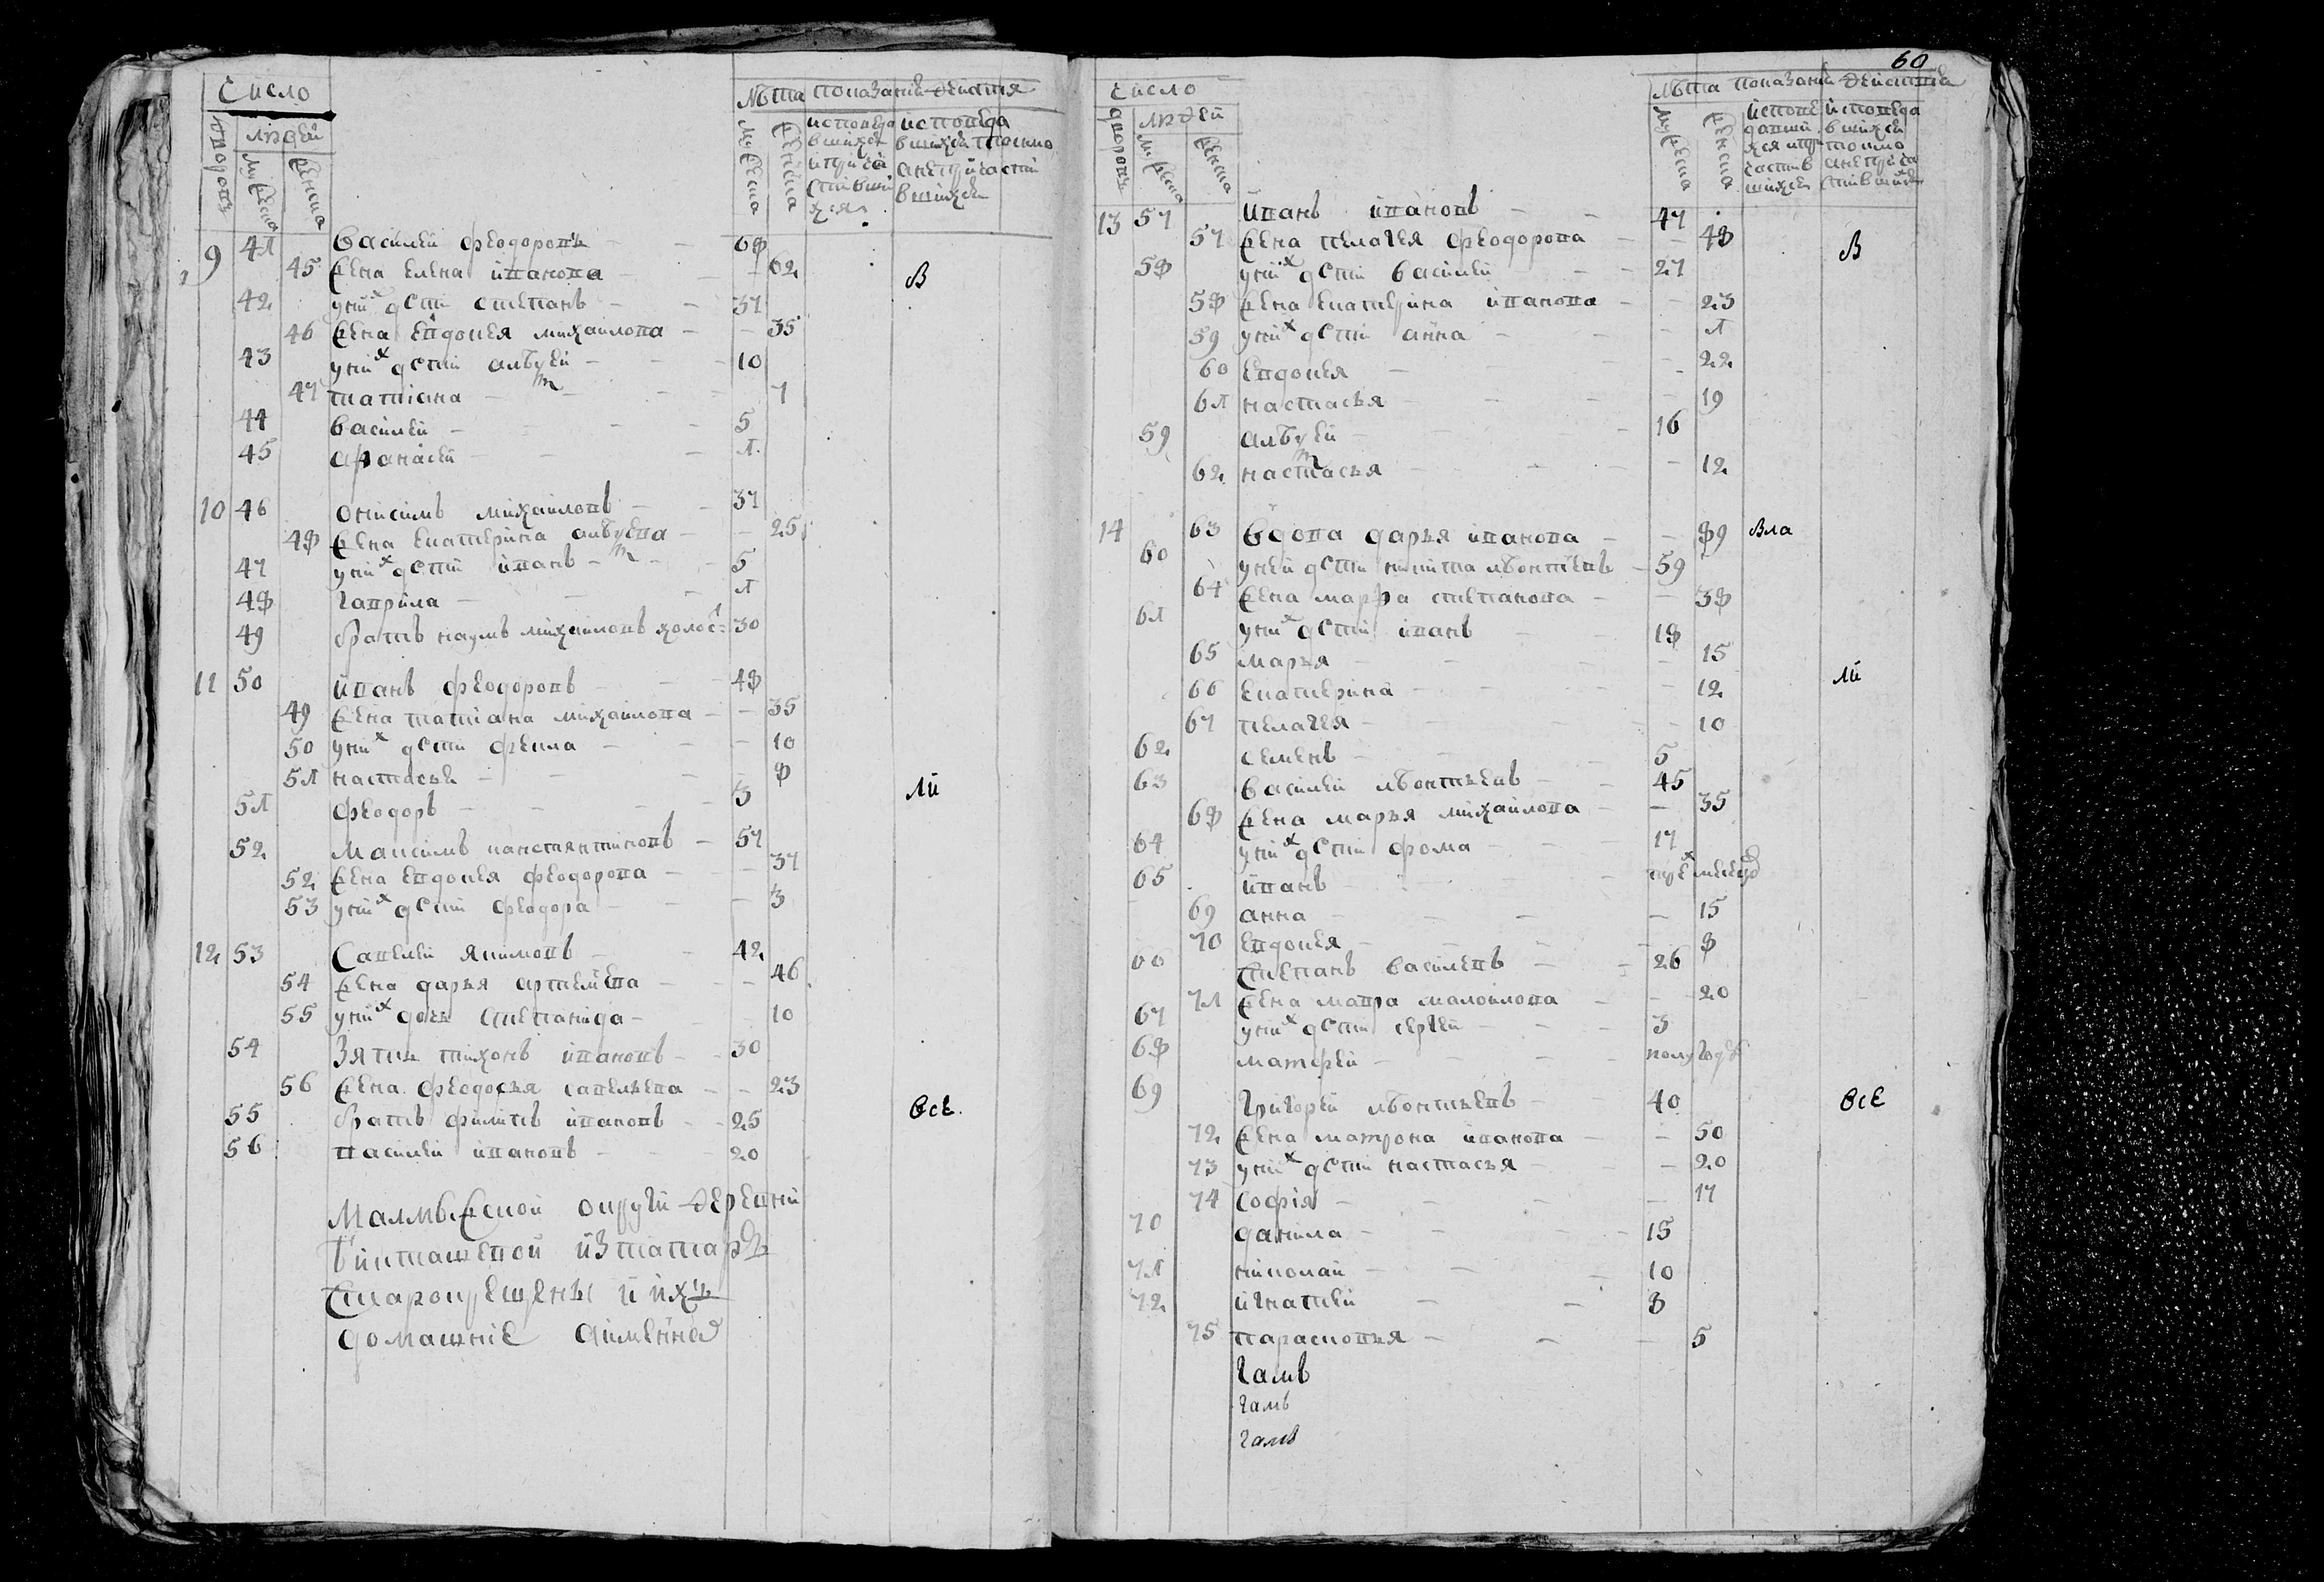 Число
Лѣта показаніе дѣйства
дворовъ
людей
мужеска
женска
мужеска
женска
исповѣда
вшихся
и прича
стивши
хся
исповѣда
вшихся токмо
а не причасти
вшихся
9 41 Василей Феодоровъ 68
45 жена Елена Иванова 62
В
42 у них дети Стѣпанъ 37
46 жена Евдокея Михаилова 35
43 у них дети Алѣѯей 10
47 Татиана 7
44 Василей 5
45 Афанасей 1
10 46 Онисимъ Михаиловъ 37
48 жена Екатерина Алѣѯеева 25
47 у них дети Иванъ 5
48 Гаврила 1
49 братъ Наумъ Михаиловъ холост 30
11 50 Иванъ Феодоровъ 48
49 жена Татиана Михаилова 35
50 у них дети Фекла 10
51 Настасья 8
ли
51 Феодоръ 3
52 Максимъ Канстянтиновъ 57
52 жена Евдокея Феодорова 37
53 у них дети Феодора 3
12 53 Савелей Якимовъ 42
54 жена Дарья Артемѣева 46
55 у них дочь Степанида 10
54 Зять Тихонъ Ивановъ 30
56 жена Феодосья Савельева 23
55 братъ Филипъ Ивановъ 25
все
56 Василей Ивановъ 20
Малмыжской округи деревни
старокрещены и ихъ
домашние а имянно
60
Число
Лѣта показаніе дѣйства
дворовъ
людей
мужеска
женска
мужеска
женска
исповѣ
давши
хся и при
частив
шихся
исповѣда
вшихся
токмо
а не прича
стившихся
13 57 Иванъ Ивановъ 47
57 жена Пелагея Феодорова 48
В
58 у них дети Василей 27
58 жена Екатерина Иванова 23
59 у них дети Анна 1
60 Евдокея 22
61 Настасья 19
59 Алѣѯей 16
62 Настасья 12
14 63 Вдова Дарья Иванова 89 Вла
60 у ней дети Никита Лѣонтьевъ 59
64 жена Марфа Степанова 38
61 у них дети Иванъ 18
65 Марья 15
66 Екатерина 12
ли
67 Пелагея 10
62 Семенъ 5
63 Василей Лѣонтьевъ 45
68 жена Марья Михаилова 35
64 у них дети Фома 17
65 Иванъ
69 Анна 15
70 Евдокея 8
66 Степанъ Василевъ 26
71 жена Мавра Малоилова 20
67 у них дети Сергей 3
68 Матфей полугоду
69 Григорей Лѣонтьевъ 40
все
72 жена Матрона Иванова 50
73 у них дети Настасья 20
74 Софія 17
70 Данила 15
71 Николай 10
72 Игнатей 8
75 Парасковья 5
Галѣ
Галѣ
Галѣ